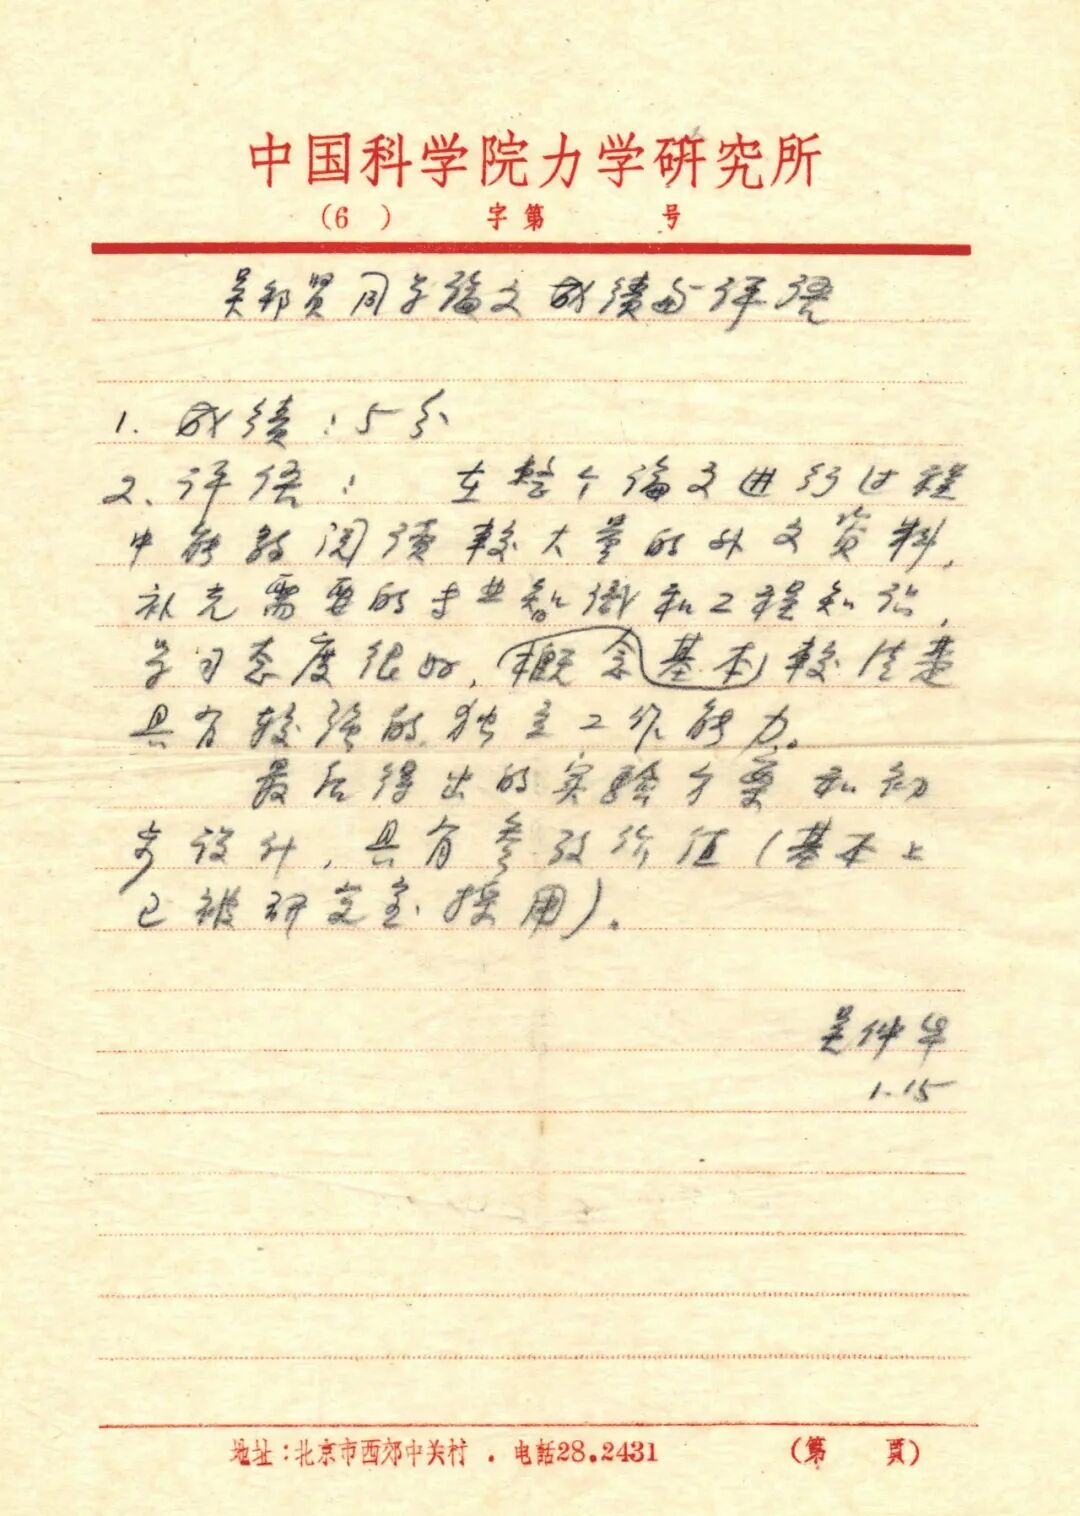 中国科学院力学研究所
(6 ) 字第 号
吴邦贤同学論文成绩与评语
1. 成绩：5分
2、评语： 在整个論文进行过程
中能够阅读較大量的外文资料，
补充需要的专业智識和工程知识，
学习态度很好，概念基本較清楚
具有较强的独立工作能力。
最后得出的实验方案和初
步设计，具有参政价值（基本上
已被研究室採用）。
吴仲华
1.15
地址：北京市西郊中关村．电話28.2431 （第 頁）